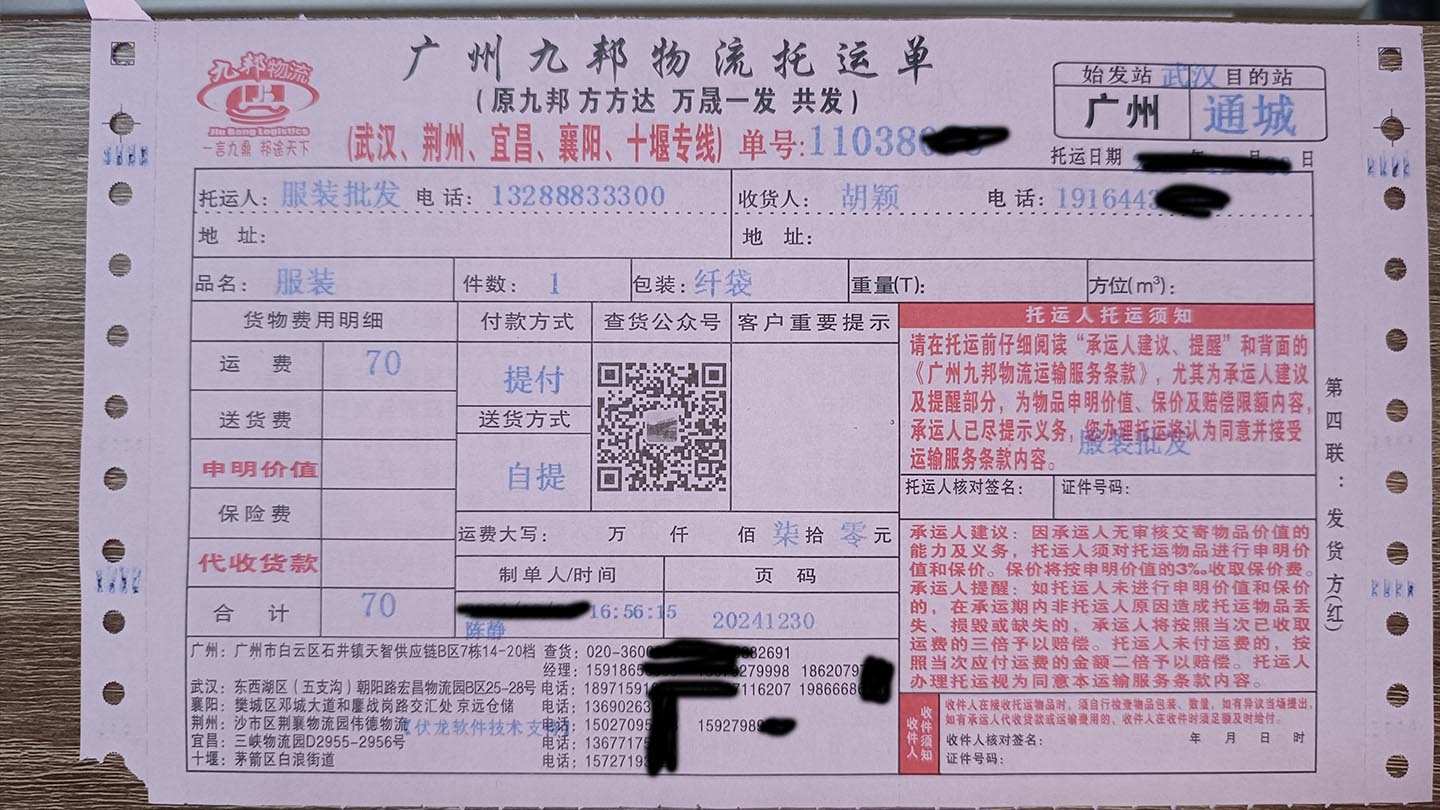 广州九邦物流托运单
(原九邦 方方达 万晟一发 共发)
(武汉、荆州、宜昌、襄阳、十堰专线) 单号:11038
九邦物流
Jiu Bang Logistics
一言九鼎 邦途天下
始发站 武汉 目的站
广州 通城
托运日期 年 月 日
托运人: 服装批发 电话: 13288833300 收货人: 胡颖 电话: 1916443
地 址: 地 址:
品名: 服装 件数: 1 包装: 纤袋 重量(T): 方位(m³):
货物费用明细 付款方式 查货公众号 客户重要提示 托运人托运须知
运 费 70 提付
送货费 送货方式
申明价值 自提
保险费
代收货款
合 计 70
请在托运前仔细阅读“承运人建议、提醒”和背面的
《广州九邦物流运输服务条款》,尤其为承运人建议
及提醒部分,为物品申明价值、保价及赔偿限额内容,
承运人已尽提示义务,您办理托运将认为同意并接受
运输服务条款内容。
服装批发
托运人核对签名: 证件号码:
运费大写: 万 仟 佰 柒 拾 零 元
制单人/时间 页 码
16:56:15 20241230
陈静
承运人建议:因承运人无审核交寄物品价值的
能力及义务,托运人须对托运物品进行申明价
值和保价。保价将按申明价值的3‰收取保价费。
承运人提醒:如托运人未进行申明价值和保价
的,在承运期内非托运人原因造成托运物品丢
失、损毁或缺失的。承运人将按照当次已收取
运费的三倍予以赔偿。托运人未付运费的,按
照当次应付运费的金额二倍予以赔偿。托运人
办理托运视为同意本运输服务条款内容。
广州:广州市白云区石井镇天智供应链B区7栋14-20档 查货:020-360 82691
经理:1591865 279998 1862079
武汉:东西湖区(五支沟)朝阳路宏昌物流园B区25-28号 电话:1897159 7116207 1986668
襄阳:樊城区邓城大道和鏖战岗路交汇处 京远仓储 电话:1369026
荆州:沙市区荆襄物流园伟德物流 电话:15027095 1592798
【伏龙软件技术支持】
宜昌:三峡物流园D2955-2956号 电话:1367717
十堰:茅箭区白浪街道 电话:1572719
收件人 收件须知
收件人在接收托运物品时,须自行检查物品包装、数量,如有异议当场提出,
如有承运人代收货款或运输费用的,收件人在收件时须足额及时给付。
收件人核对签名: 年 月 日 时
证件号码:
第四联:发货方(红)